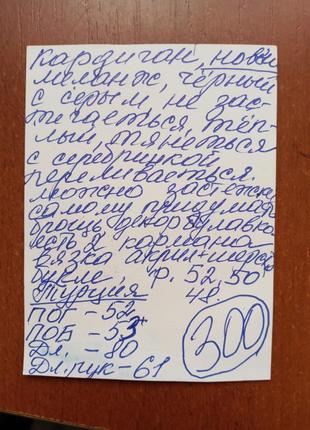 Кардиган, новый
меланж, чёрный
с серым, не зас-
тёгаеться, тёп-
лый, тянеться
с серебрицкой
переливаеться.
можно застежку
самому придумать
брошь, декор булавка
есть 2 кармана
вязка акрил+шерсть
букле, р. 52, 50
Турция 48.
ПОГ - 52
ПОБ - 53+
Дл. - 80
Дл. рук - 61
300